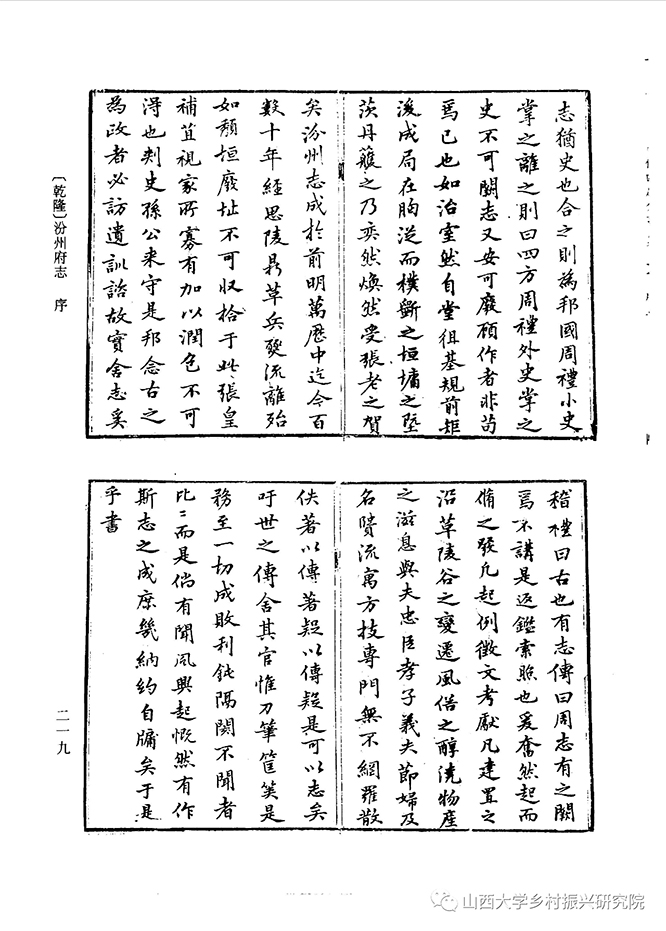 志猶史也合之則為邦國周禮小史
掌之離之則曰四方周禮外史掌之
史不可闕志又安可廢顧作者非苟
焉已也如治室然自堂徂基規前矩
後成局在胸従而樸斲之垣墉之塈
茨丹雘之乃奕然煥然受張老之賀
矣汾州志成於前明萬厯中迄今百
數十年經思陵鼎革兵燹流離殆
如頹垣廢址不可収拾于此張皇
補苴視家所寡有加以潤色不可
得也刺史孫公来守是邦念古之
為政者必訪遺訓諮故實舍志奚
稽禮曰古也有志傳曰周志有之闕
焉不講是返鑑索照也爰奮然起而
脩之發凡起例徵文考獻凡建置之
沿革陵谷之變遷風俗之醇澆物產
之滋息與夫忠臣孝子義夫節婦及
名賢流寓方技專門無不網羅散
佚著以傳著疑以傳疑是可以志矣
吁世之傳舍其官惟刀筆筐篋是
務至一切成敗利鈍隔閡不聞者
比二而是倘有聞風興起慨然有作
斯志之成庶幾納約自牖矣于是
乎書
〔乾隆〕汾州府志 序
二一九
山西大学乡村振兴研究院